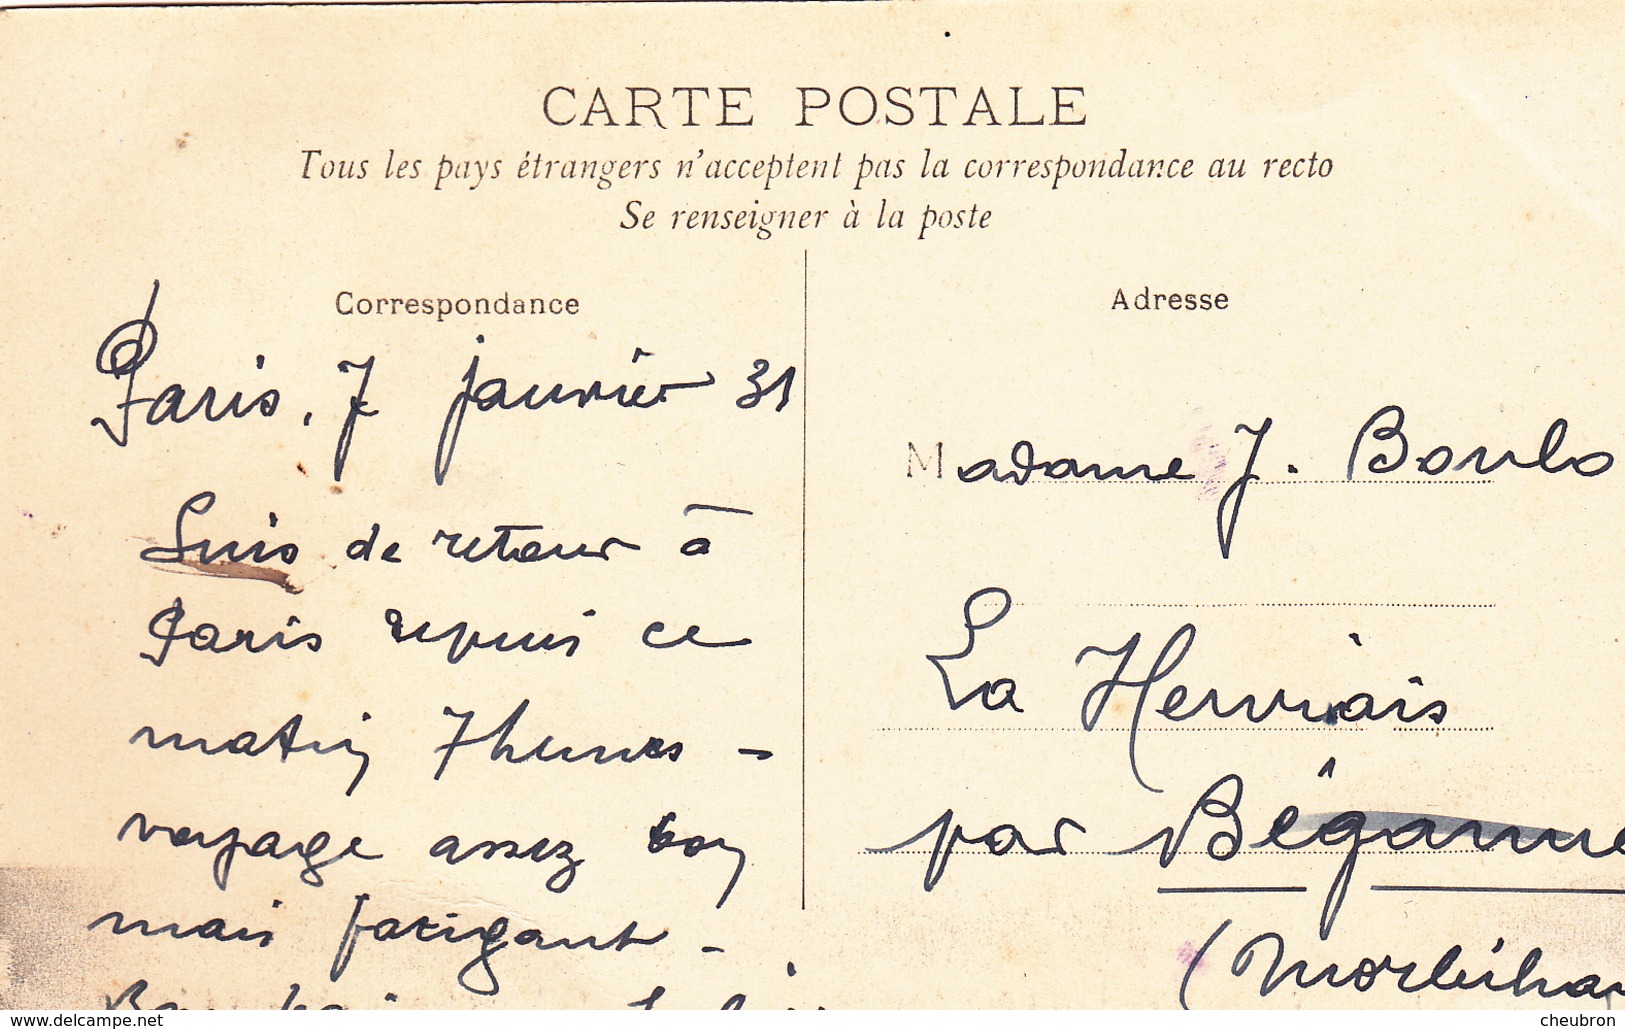 CARTE POSTALE
Tous les pays étrangers n'acceptent pas la correspondance au recto
Se renseigner à la poste
Correspondance
Paris, 7 janvier 31
Suis de retour à
Paris depuis ce
matin 7 heures -
voyage assez bon
mais fatigant -
Adresse
Madame J. Boulo
La Herviais
par Béganne
(Morbihan
www.delcampe.net
cheubron